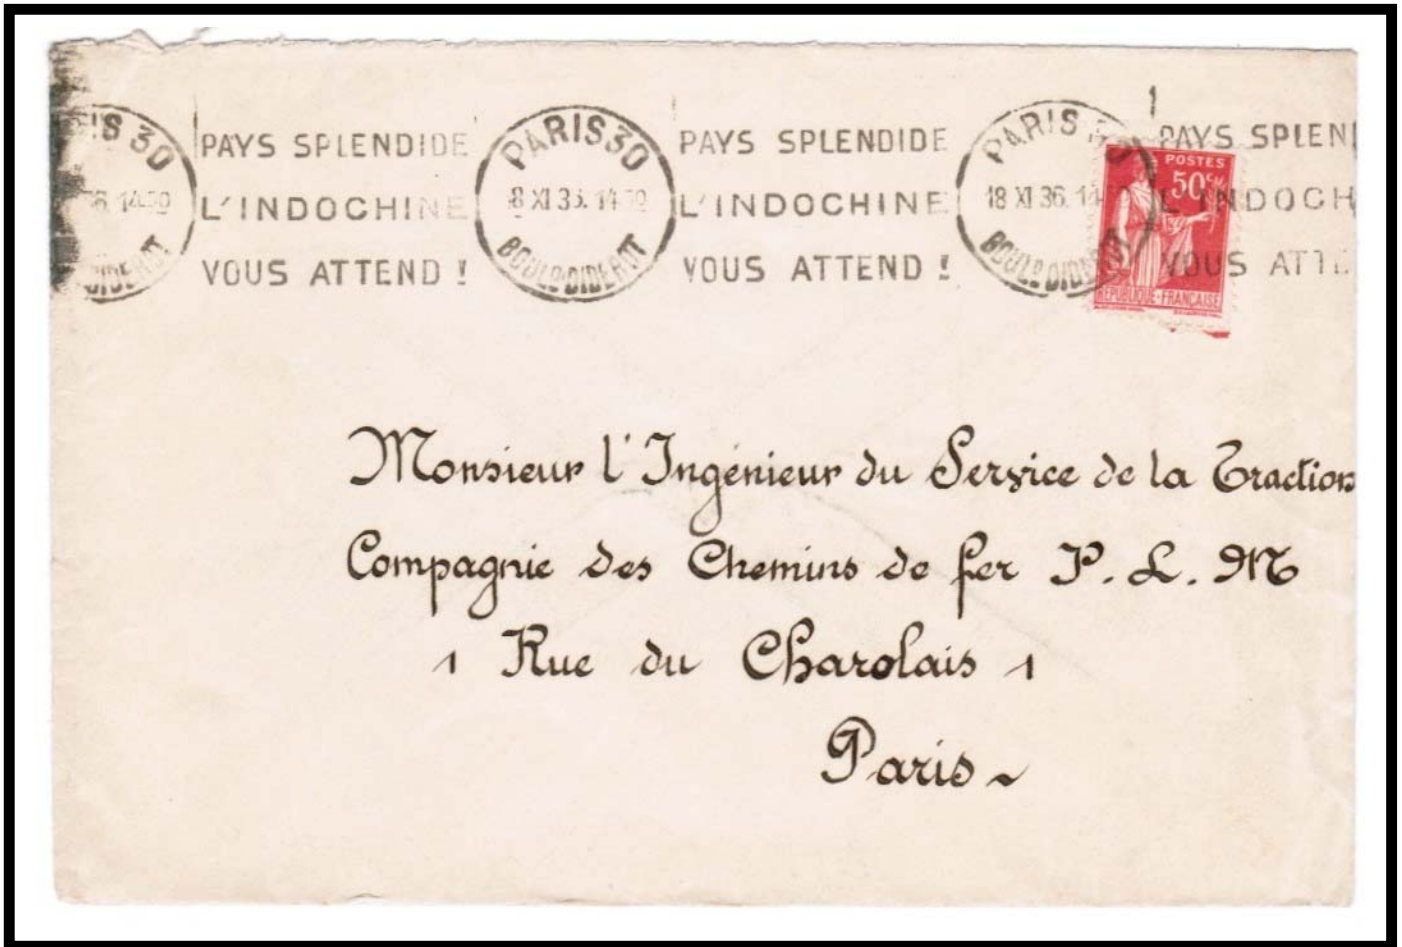 PARIS 30
PAYS SPLENDIDE
L'INDOCHINE
VOUS ATTEND !
PARIS 30
18 XI 36. 14
BOULD DIDEROT
PAYS SPLENDIDE
L'INDOCHINE
VOUS ATTEND !
PARIS 30
18 XI 36. 14
BOULD DIDEROT
PAYS SPLEN
L'INDOCH
VOUS ATTE
POSTES
50 c
REPUBLIQUE-FRANÇAISE
Monsieur l'Ingénieur du Service de la Traction
Compagnie des Chemins de fer P. L. M
1 Rue du Charolais 1
Paris ~